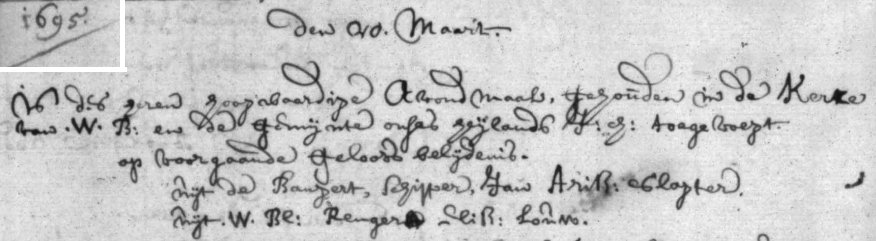 1695.
den 20. Maart.
Is des Heren hoogwaardige Avondmaal, gehouden in de Kerke
van. W. B: en de gemynte onses Heylands J: C: toegevoegt.
op voorgaande geloovs belydenis.
uyt de Banpert, Schipper, Jan Ariss: Slopter.
uyt. W. Bl: Renger Eliss: Louw.